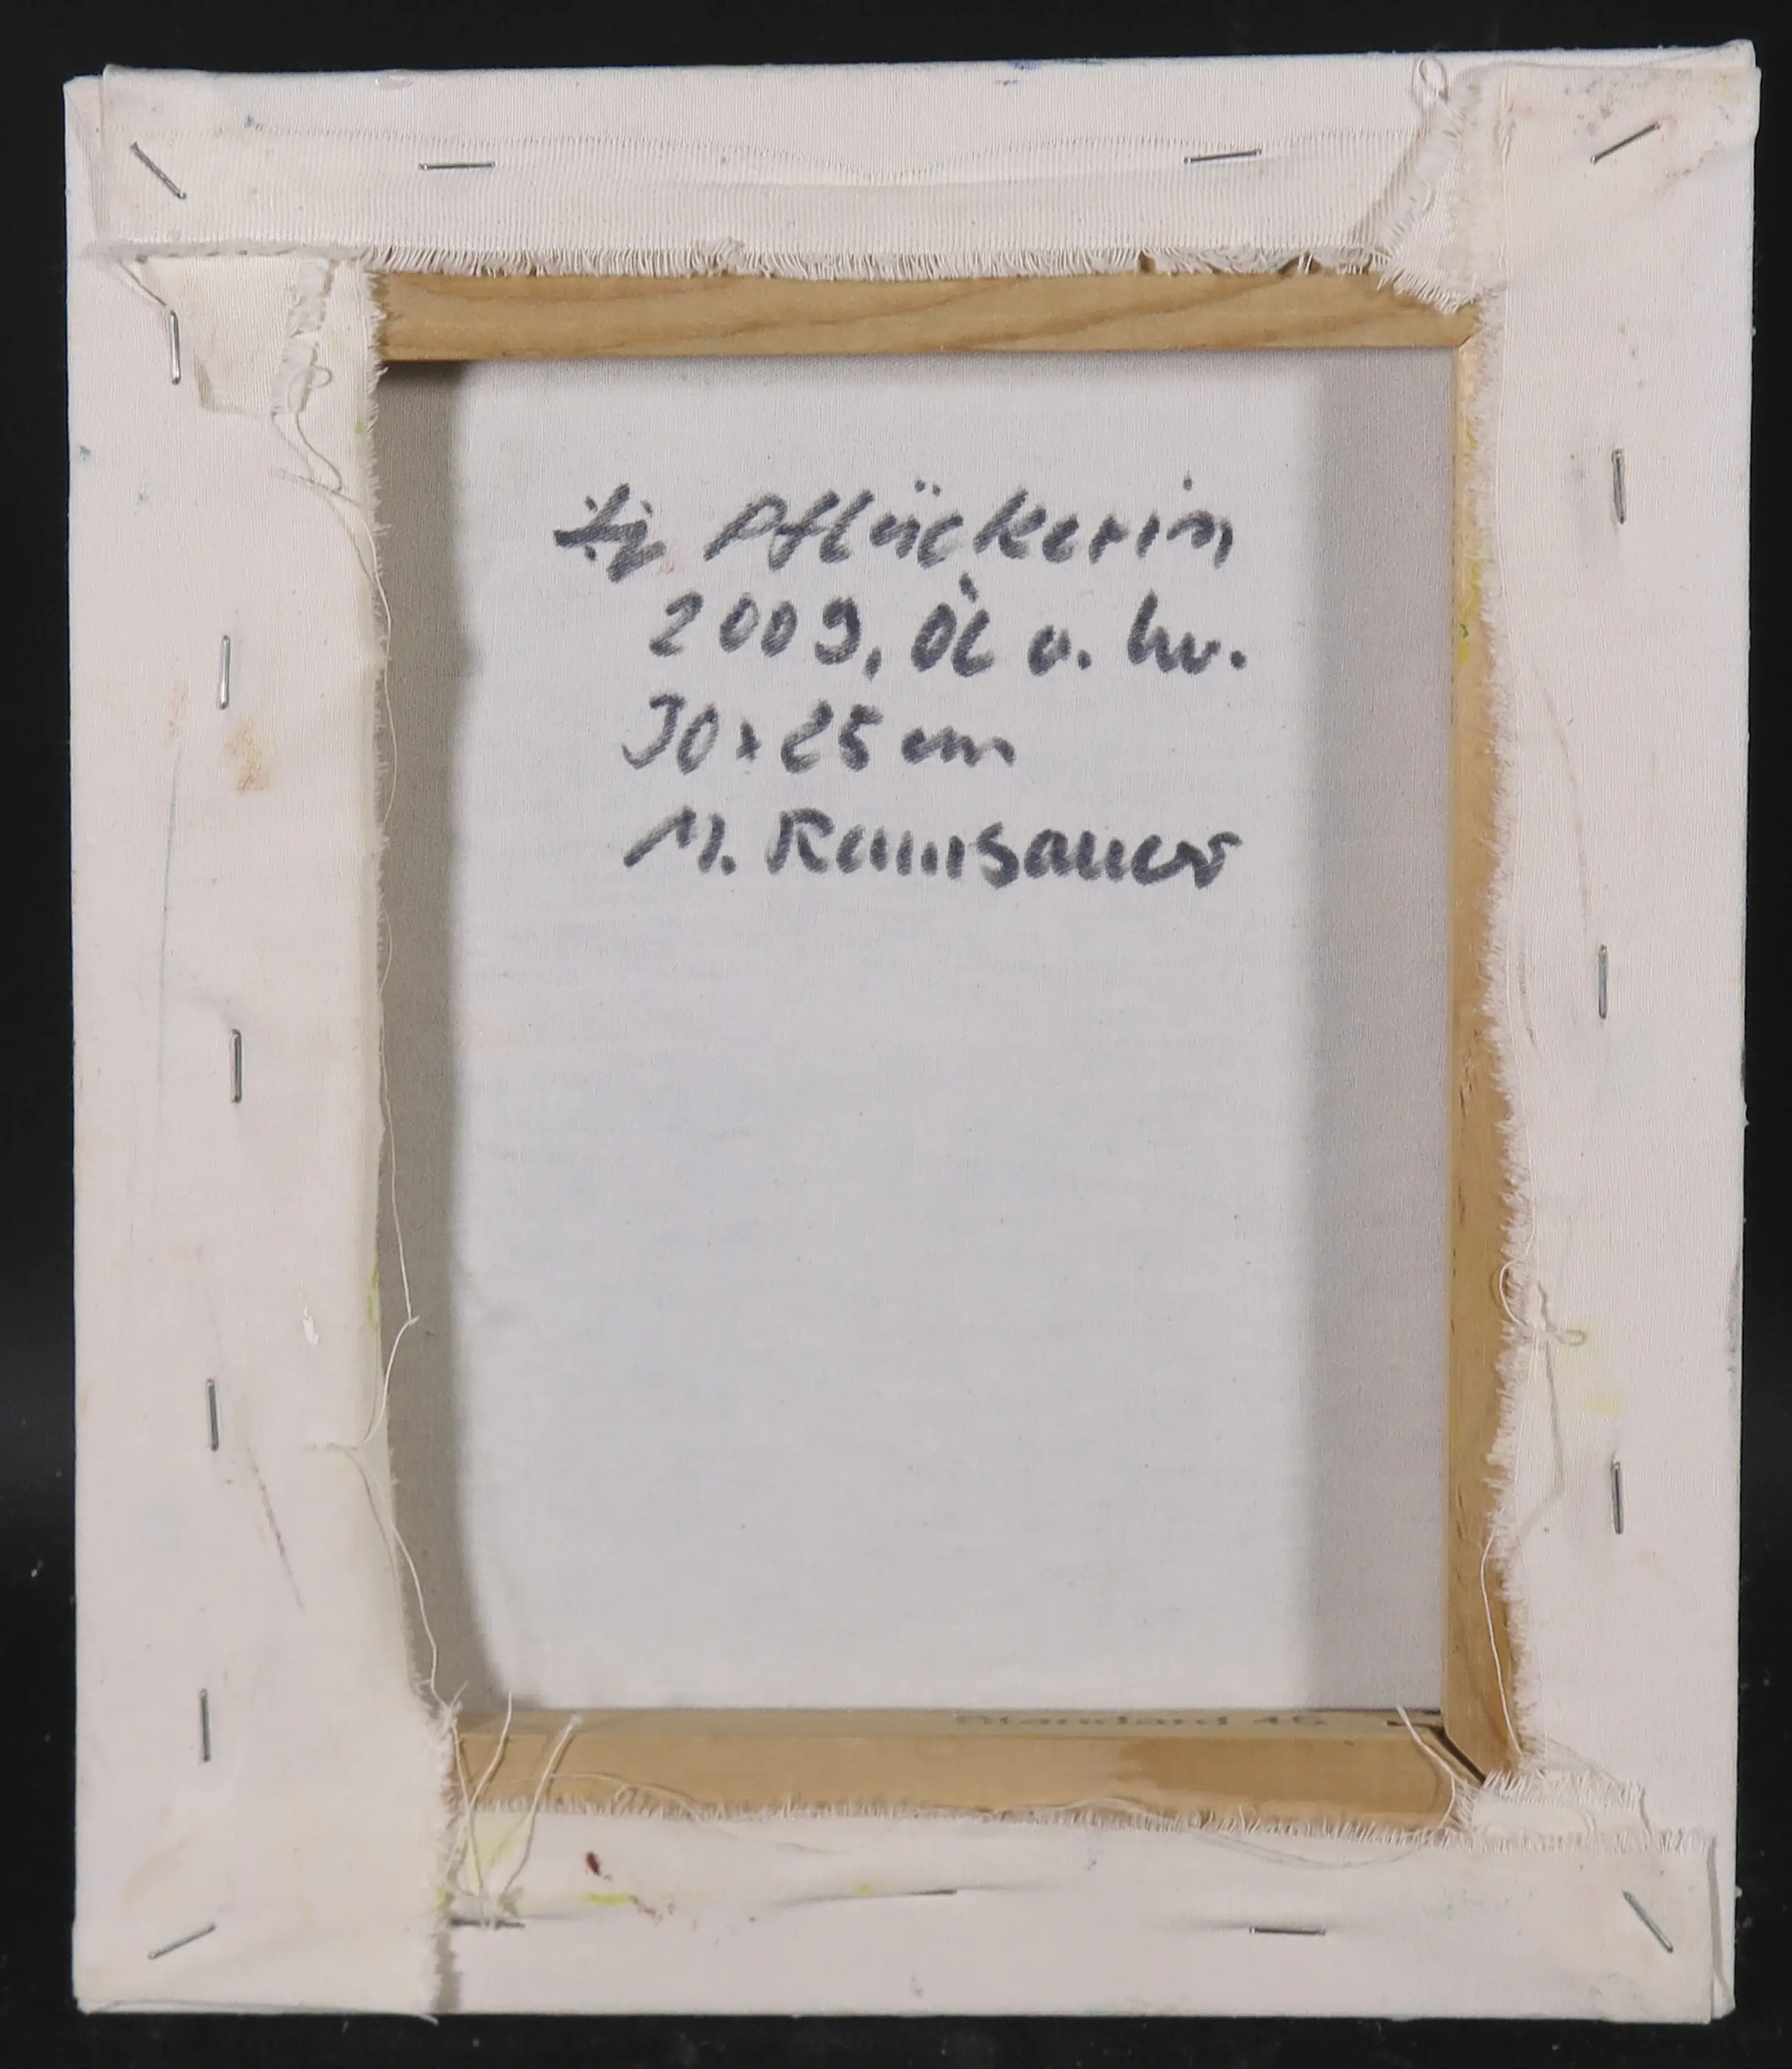 Pflückerin
2009, Öl a. Lw.
30 x 25 cm
M. Ramsauer
Standard 46